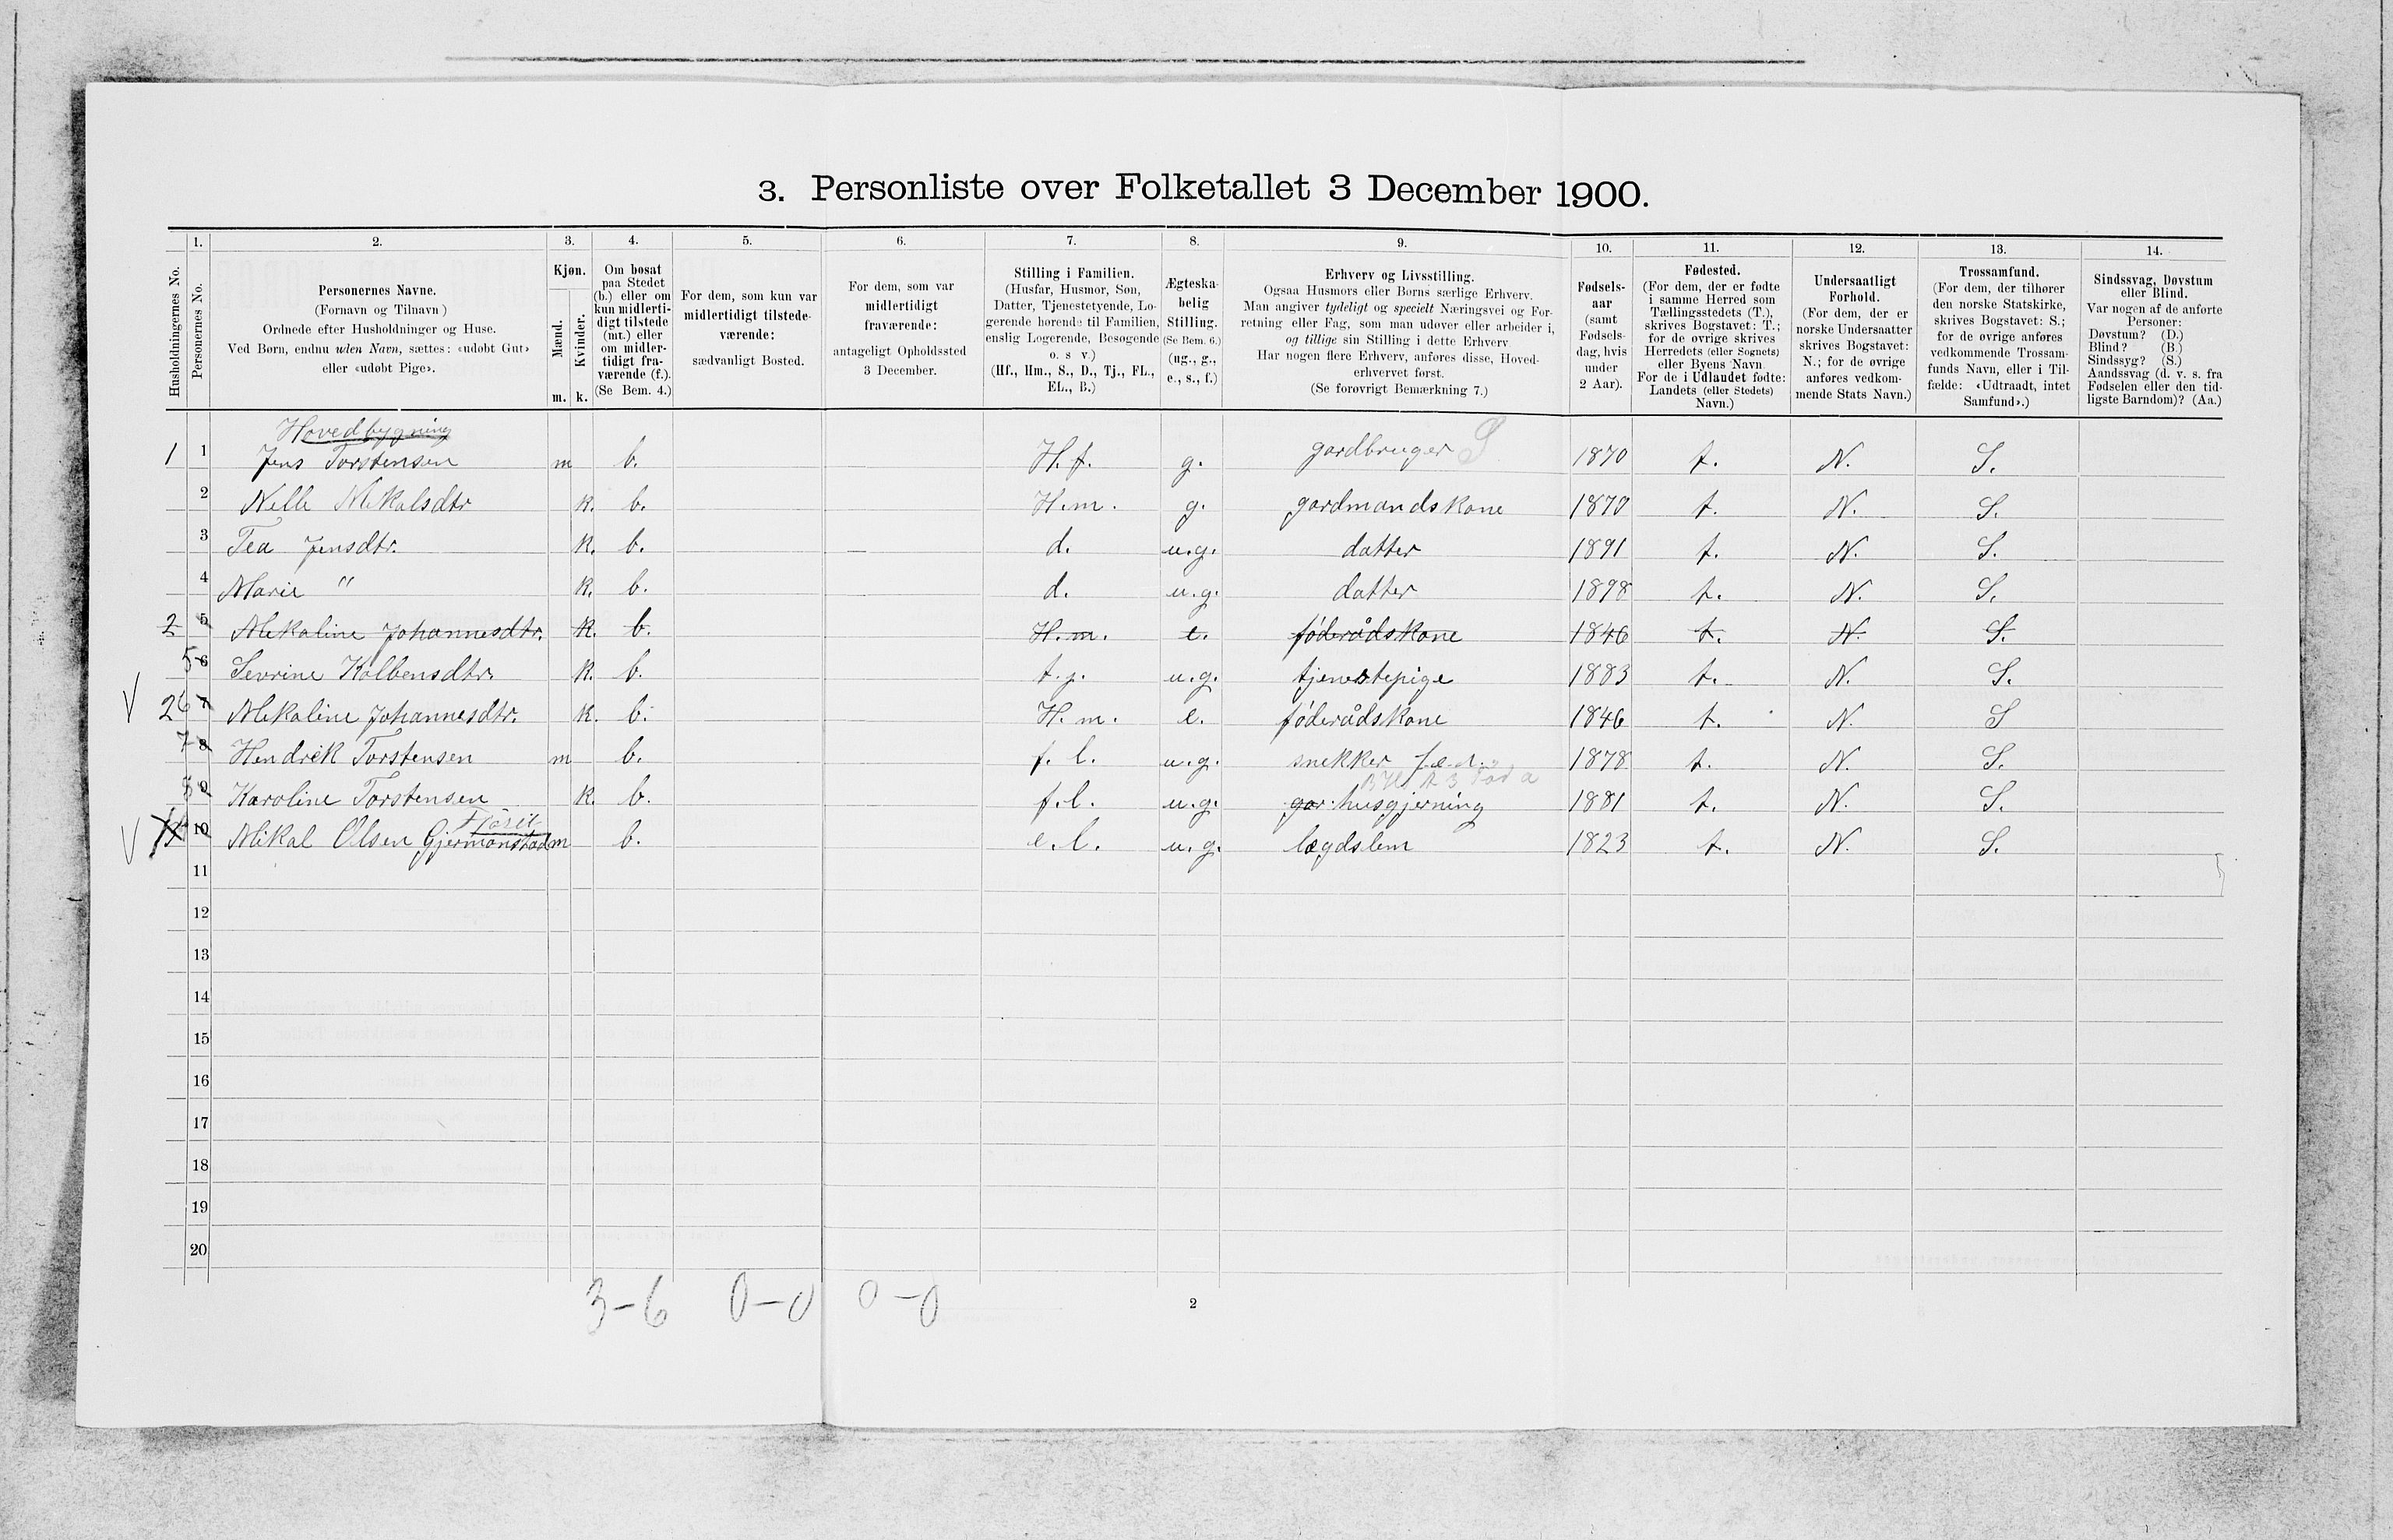 3. Personliste over Folketallet 3 December 1900.
1. 2. 3. 4. 5. 6. 7. 8. 9. 10. 11. 12. 13. 14.
Husholdningernes No.
Personernes No.
Personernes Navne.
(Fornavn og Tilnavn)
Ordnede efter Husholdninger og Huse.
Ved Børn, endnu uden Navn, sættes: «udøbt Gut»
eller «udøbt Pige».
Kjøn.
Mænd.
Kvinder.
m. k.
Om bosat
paa Stedet
(b.) eller om
kun midlerti-
digt tilstede
(mt.) eller
om midler-
tidigt fra-
værende (f.).
(Se Bem. 4.)
For dem, som kun var
midlertidigt tilstede-
værende:
sædvanligt Bosted.
For dem, som var
midlertidigt
fraværende:
antageligt Opholdssted
3 December.
Stilling i Familien.
(Husfar, Husmor, Søn,
Datter, Tjenestetyende, Lo-
gerende hørende til Familien,
enslig Logerende, Besøgende
o. s v.)
(Hf., Hm., S., D., Tj., FL.,
EL., B.)
Ægteska-
belig
Stilling.
(Se Bem. 6.)
(ug., g.,
e., s., f.)
Erhverv og Livsstilling.
Ogsaa Husmors eller Børns særlige Erhverv.
Man angiver tydeligt og specielt Næringsvei og For-
retning eller Fag, som man udøver eller arbeider i,
og tillige sin Stilling i dette Erhverv
Har nogen flere Erhverv, anføres disse, Hoved-
erhvervet først.
(Se forøvrigt Bemærkning 7.)
Fødsels-
aar
(samt
Fødsels-
dag, hvis
under
2 Aar).
Fødested.
(For dem, der er fødte
i samme Herred som
Tællingsstedets (T.),
skrives Bogstavet: T.;
for de øvrige skrives
Herredets (eller Sognets)
eller Byens Navn.
For de i Udlandet fødte:
Landets (eller Stedets)
Navn.)
Undersaatligt
Forhold.
(For dem, der er
norske Undersaatter
skrives Bogstavet:
N.; for de øvrige
anføres vedkom-
mende Stats Navn.)
Trossamfund.
(For dem, der tilhører
den norske Statskirke,
skrives Bogstavet: S.;
for de øvrige anføres
vedkommende Trossam-
funds Navn, eller i Til-
fælde: «Udtraadt, intet
Samfund».)
Sindssvag, Døvstum
eller Blind.
Var nogen af de anførte
Personer:
Døvstum? (D.)
Blind? (B.)
Sindssyg? (S.)
Aandssvag (d. v. s. fra
Fødselen eller den tid-
ligste Barndom)? (Aa.)
Hovedbygning
1 1 Jens Torstensen m b. H. f. g. gardbruger S 1870 t. N. S.
2 Nelle Mikalsdtr k. b. H.m. g. gardmandskone 1870 t. N. S.
3 Tea Jensdtr. k. b. d. u.g. datter 1891 t. N. S.
4 Marie " k. b. d. u.g. datter 1898 t. N. S.
2 5 Mikaline Johannesdtr. k. b. H.m. e. føderådskone 1846 t. N. S.
5 6 Sevrine Kolbensdtr. k. b. t.j. u.g. tjenestepige 1883 t. N. S.
2 6 7 Mikaline Johannesdtr. k. b. H.m. e. føderådskone 1846 t. N. S
7 8 Hendrik Torstensen m b. f. l. u.g. snekker 1878 t. N. S.
8 9 Karoline Torstensen k. b. f.l. u.g. gar husgjerning 1881 t. N. S.
10 Mikal Olsen Gjermanstad m b. e.l. u.g. lægdslem 1823 t. N. S.
11
12
13
14
15
16
17
18
19
20
3-6 0-0 0-0
2